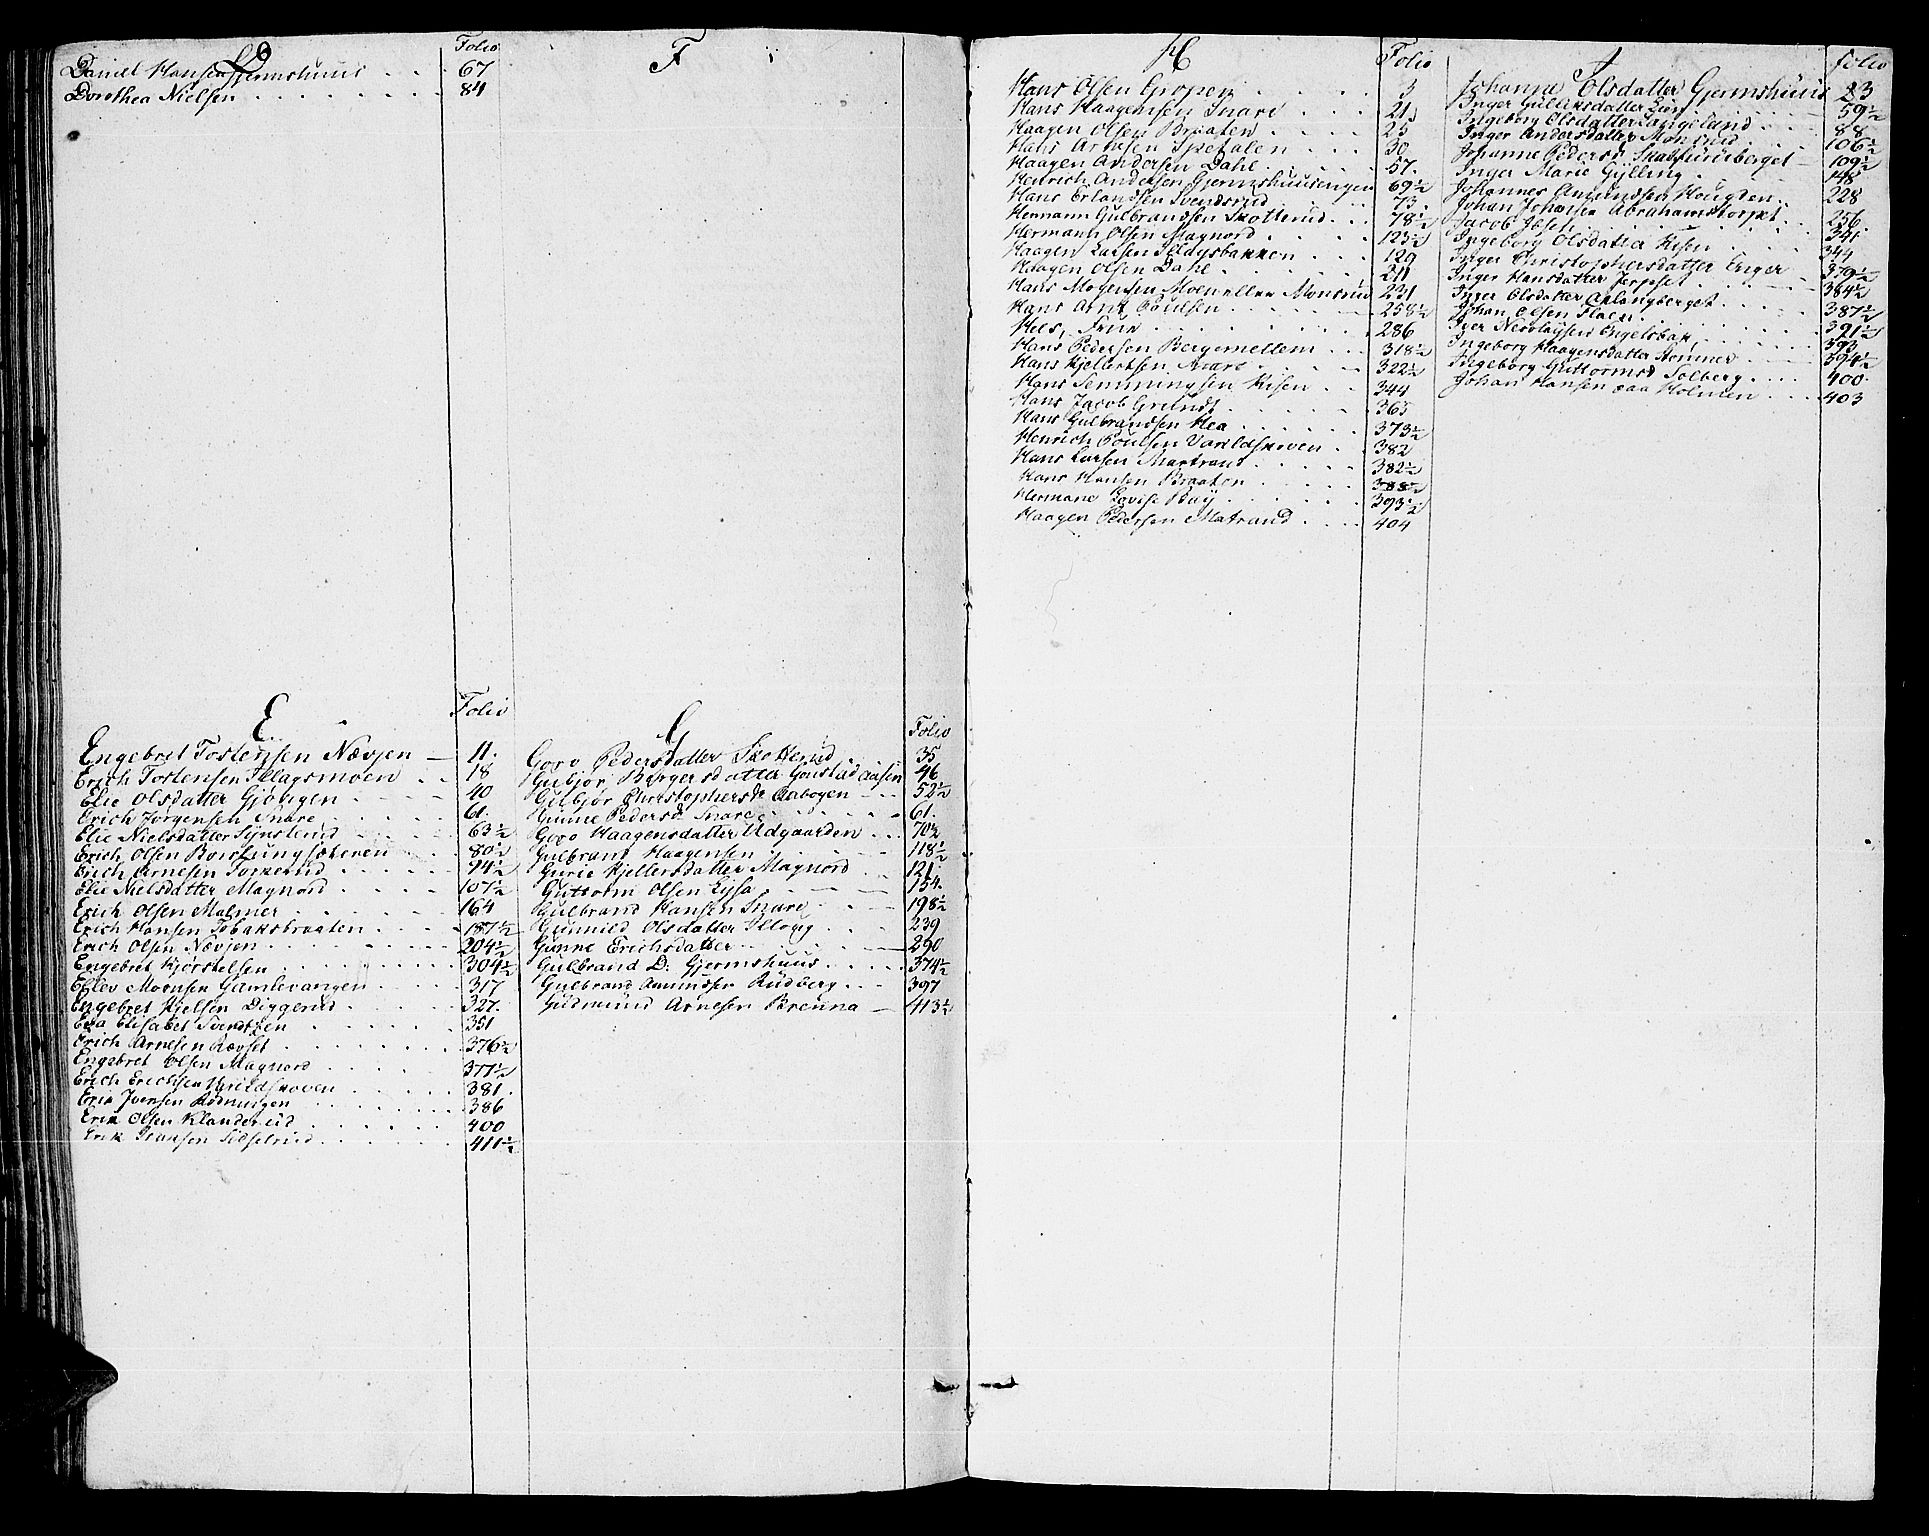 D Folio
Daniel Hansen Gjermshuus . . . 67
Dorothea Nielsen . . . . . . . . 84
F
E Folio
Engebret Tostensen Nævjen — 11.
Erich Tostensen Illagsmoen . . 18
Elie Olsdatter Gjøbigen . - - - 40
Erich Jörgensen Snare . . . . . 61.
Elie Nielsdatter . . . . 63½
Erich Olsen . . 80½
Erich Arnesen . . . . . 94½
Elie Nielsdatter Magnord . . . . 107½
Erich Olsen Malmer . . . . . . 164
Erich Hansen Tobaksbraaten . . . . 187½
Erich Olsen Nævjen . . . . . . . 204½
Engebret Kjørstelsen . . . . . . . 304½
Ellev Moensen Gamlevangen . . . . 317
Engebret Kjelsen Diggerud . . . . . 327.
Eva Elisabet Svendsen . . . . . . 351
Erich Arnesen Rævset . . . . . . 376½
Engebret Olsen Magnord . . . . . 377½
Erich Erichsen Varildskoven . . . . 381.
Erik Iversen . . . . . 386
Erik Olsen Klanderud . . . . . . 400
Erik Hansen Sidselrud . . . . . . 411½
G Folio
Goro Pedersdatter Skotterud 35
Gulbjør Børgersdatter Gonstadaasen 46
Gulbjør Christophersdr Aabogen - - - 52½
Gunne Pedersd: Snare . . . . . 61.
Goro Haagensdatter Udgaarden . . . 70½
Gulbrand Haagensen . . . . . 118½
Gurie Kjellersdatter Magnord . . . 121.
Guttorm Olsen Lyssa — — — 154.
Gulbrand Hansen Snare . . . — 198½
Gunnild Olsdatter Illovig . . . 239
Gunne Erichsdatter . . . . . — 290
Gulbrand D: Gjermshuus . . . . . 374½
Gulbrand Amundsen Rudberg . . . 397
Gudmund Arnesen Brenna — 413½
H Folio
Hans Olsen Gropen . . . . . 3
Hans Haagensen Snare . . . . 21.
Haagen Olsen Braaten . . . . 25
Hans Arnesen Spetalen . . . . 30
Haagen Andersen Dahl . . . . . 57.
Henrich Andersen Gjermshuusengen 69½
Hans Erlandsen Svendsrud . . . . 73.
Hermann Gulbrandsen Skotterud . . . 78½
Hermann Olsen Magnord . . . . . 123½
Haagen Larsen Illagsbakken . . . . 129
Haagen Olsen Dahl . . . . . . 211
Hans Mogensen Moen eller Monsrud 231
Hans Arnt Poulsen . . . . . . — 258½
Hees, Frue . . . . . . . . . 286
Hans Pedersen Bergemellem . . . 318½
Hans Kjellertsen Snare . . . . . 322½
Hans Semmingsen Kisen . . . 344
Hans Jacob Grundt . . . . . . 365
Hans Gulbrandsen Hea . . . . . . 373½
Henrich Poulsen Varildskoven . . 382
Hans Larsen Matrand . . . . . 382½
Hans Hansen Braaten . . . . . 388½
Hermane Lovise Bay . . . . . . 393½
Haagen Pedersen Matrand . . . . 404
J Folio
Johanne Olsdatter Gjermshuus 23
Inger Gulliksdatter Lier . . . . 59½
Ingeborg Olsdatter Langeland . . . 88
Inger Andersdatter Monsrud . . . . 106½
Johanne Pedersd: Skalsuueberget — 109½
Inger Marie Gylling . . . . . 148
Johannes Amundsen Hougden . . 228
Johan Johansen Abrahamstorpet . 256.
Jacob Ibsen . . . . . . . . . 341
Ingeborg Olsdatter Kisen . . . . . 344
Inger Christophersdatter Enger — 379½
Inger Hansdatter Jerpset . . . . 384½
Inger Olsdatter Aslangberget . . . . 387½
Johan Olsen Flaen . . . . . . . 391½
Iver Nicolaysen Engelsbak . . . . . 393
Ingeborg Haagensdatter Hemmer . . . 394½
Ingeborg Guttormsd: Solberg . . . . 400.
Johan Hansen paa Holmen . . . . 403